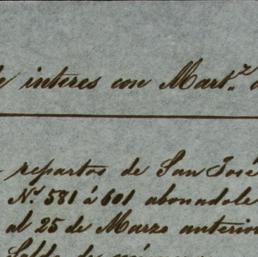 e interes con Mart.z
repartos de San José
N.o 581 á 601 abonadole
al 25 de Marzo anterior
Saldo de